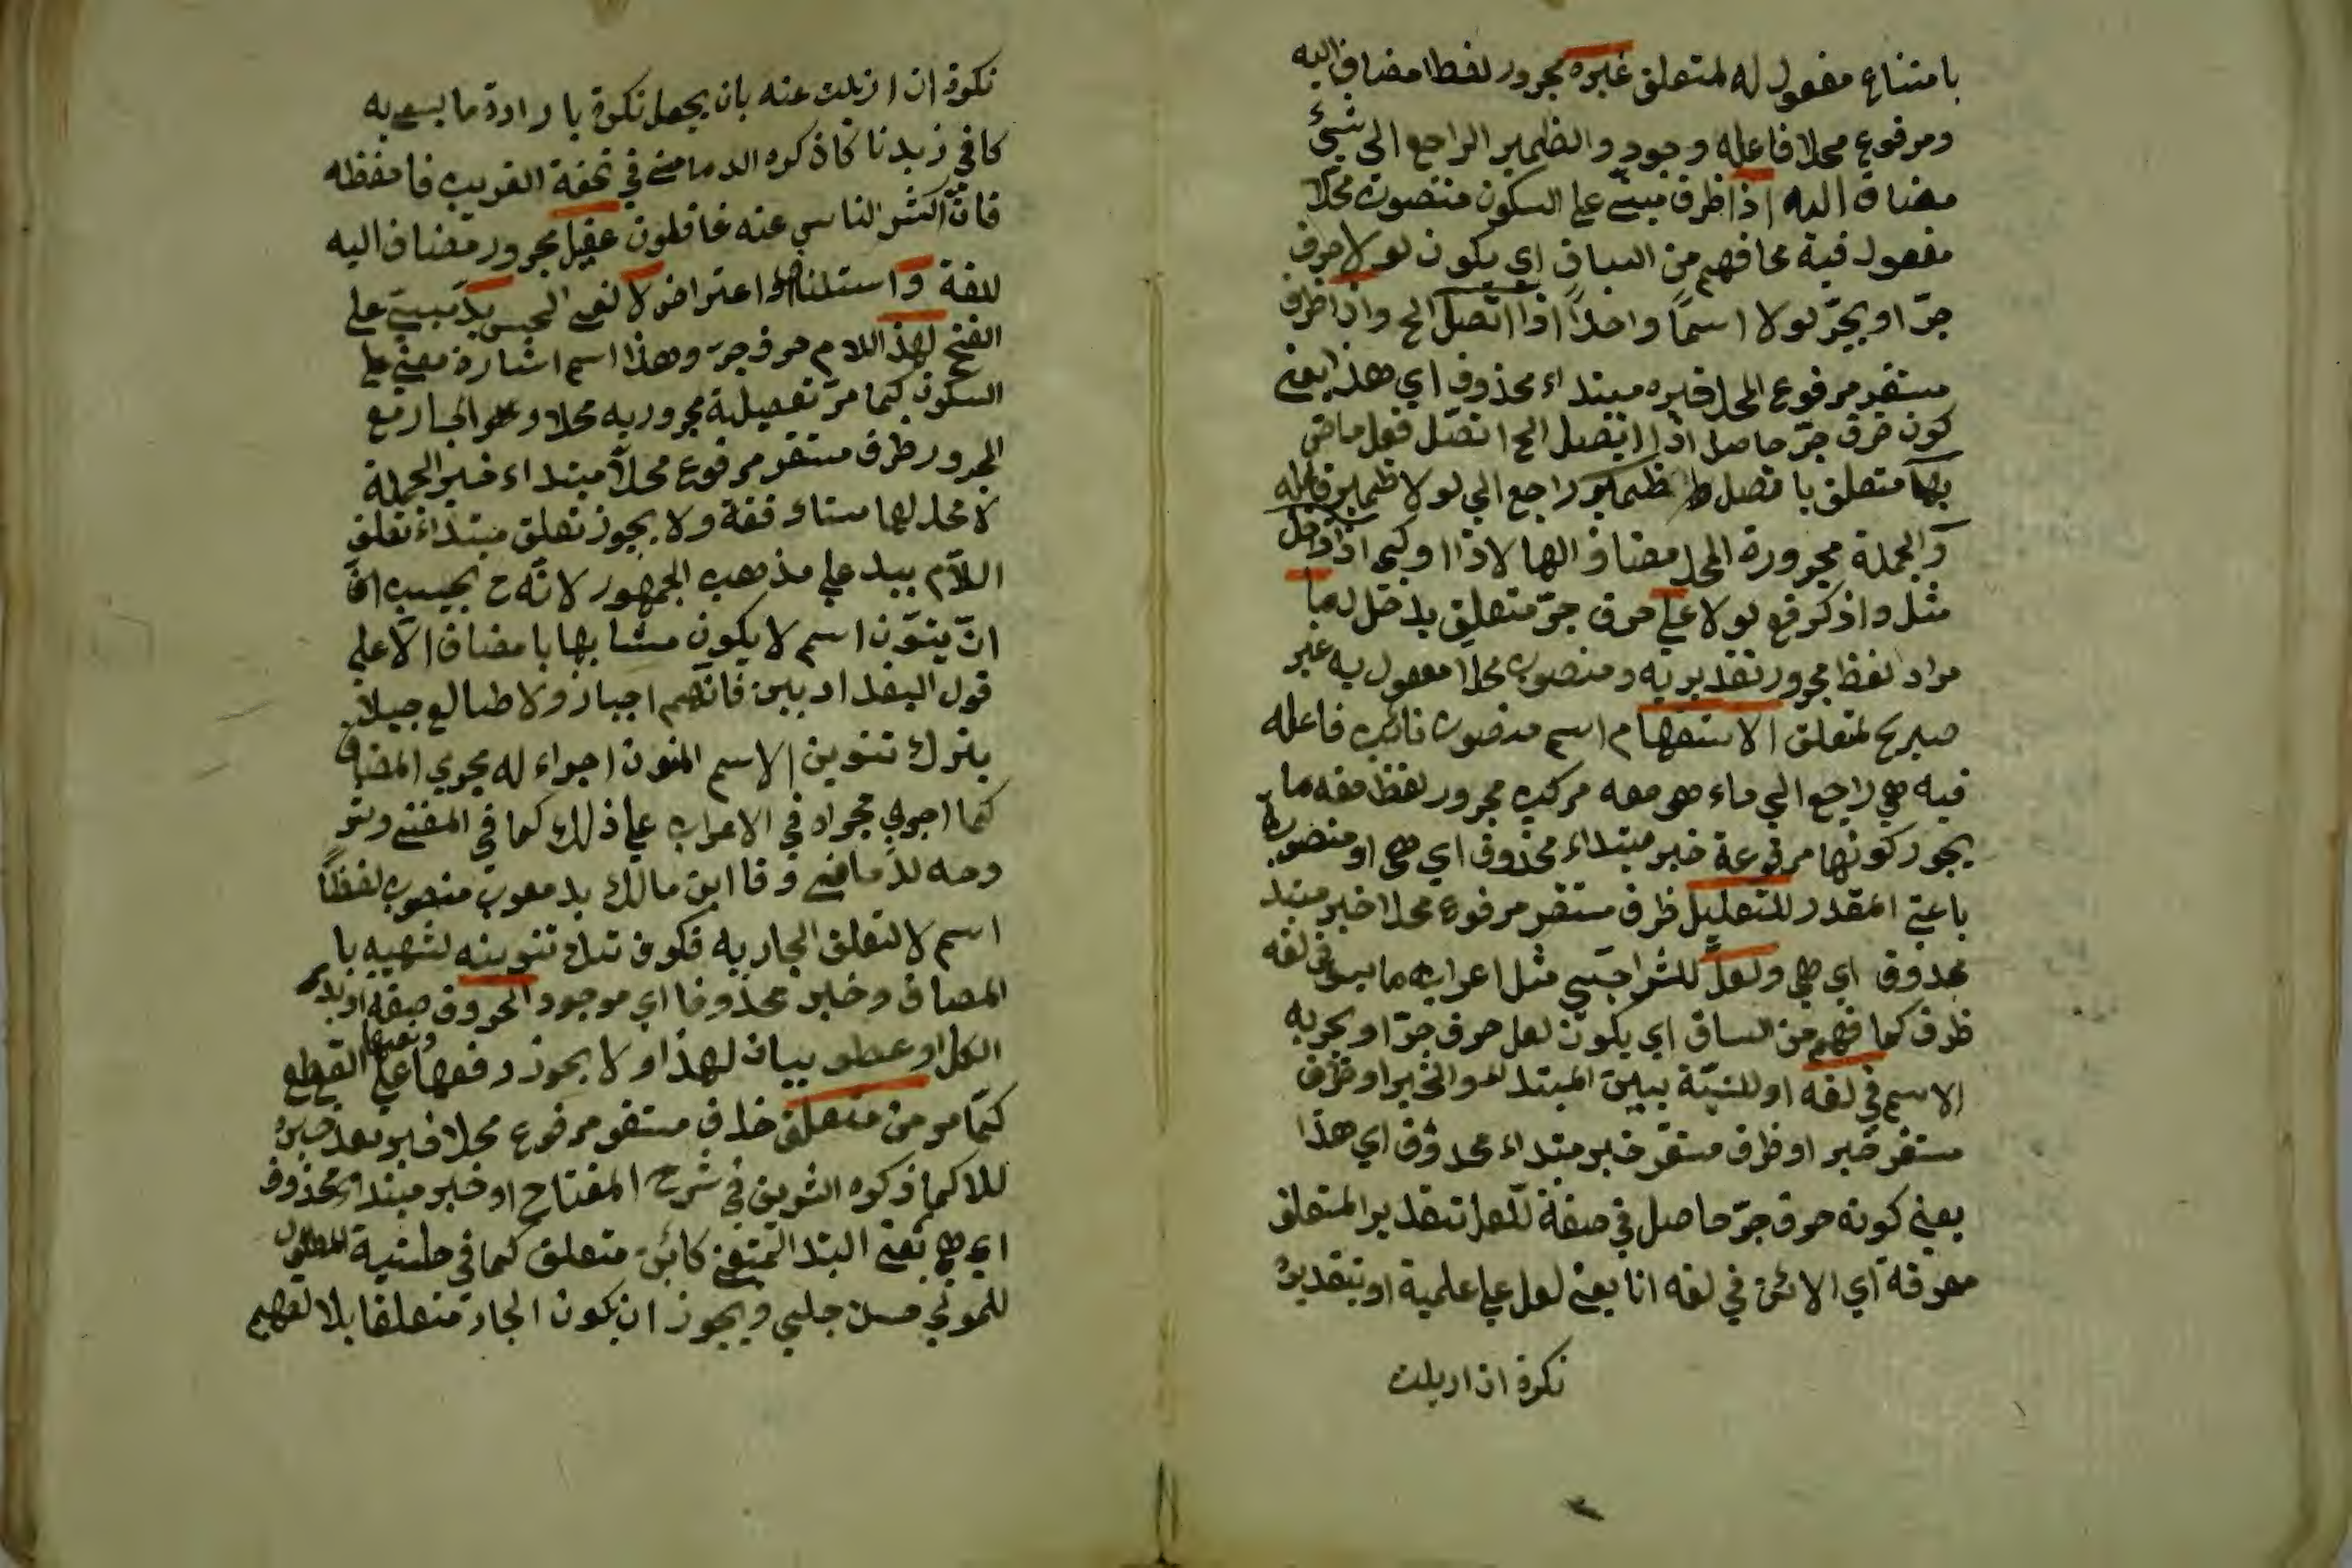 بامتناع مفعول له لمتعلق غيره مجرور لفظا مضاف اليه
ومرفوع محلا فاعله وجود والظمير الراجع الى شيئ
مضاف اليه اذا ظرف مبني على السكون منصوب محلا
مفعول فيه مما فهم من السياق اي يكون لولا حرف
جرّ او يجرّ لولا اسمًا واحدًا اذا اتصل الخ واذا ظرف
مستقر مرفوع المحل خبره مبتداء محذوف اي هذا يعني
كون حرف جرّ حاصل اذا اتصل الخ اتصّل فعل ماض
بها متعلق باتصل ظمير راجع الى لولا ظمير فاعله
والجملة مجرورة المحل مضاف الها لاذا وكي اذا دخل
مثل واذكر فع لولا على حرف جرّ متعلق بدخل له ما
مراد لفظ مجرور تقديريه ومنصوب محلا مفعول به غير
صريح لمتعلق الاستفهام اسم منصوب نائب فاعله
فيه هي راجع الى ماء هي معه مركب مجرور لفظ صفه ما
يجوز كونها مرفوعة خبر مبتداء محذوف اي هي او منصوب
باعني المقدر للتعليل ظرف مستقر مرفوع محلا خبر مبتد
محذوف اي هي ولعلّ للترا جيّ مثل اعرابه ما سبق في لغه
ظرف كما فهم من الساق اي يكون لعل حرف جرّ او يجر به
الاسم في لغه او للنسبة بين المبتدا والخبر او ظرف
مستقر خبر او ظرف مستقر خبر مبتداء محذوف اي هذا
يعني كونه حرف جرّ حاصل في صفة للعل بتقدير المتعلق
معرفة اي الائن في لغه انا يعني لعل على علمية او بتقديره
نكرة ان ازيلت
نكرة ان ازيلت عنه بان يجعل نكرة بارادة ما يسمى به
كافي زيدنا كاذكره الدمامني في تحفة الغريب فاحفظه
فانّ اكثر الناس عنه غافلون عقيل مجرور مضاف اليه
للغة و اعتراض لا لنفي الجنس بدّ مبنيّ على
الفتح لهذا اللام حرف جرّ وهذا اسم اشارة مبني على
السكون كما مرّ تفصيلة مجرور به محلا والجار مع
المجرور ظرف مستقر مرفوع محلاً مبتداء خبر الجملة
لا محل لها مستاء نفة ولا يجوز تعلق مبتداء تعلق
اللاّم ببد على مذهب الجمهور لانّه ح يجب
انّ ينوّن اسم لا يكون مشابها بامضاف الاّ على
قول البغدادبين فانّهم اجباز ولا طالع جبلاً
بترك تنوين الاسم المنون اجراء له مجري المضاف
كما اجري مجراه في الاعراب على ذلك كما في المغني
للدّمامني و ابن مالك بد معرب منصوب لفظًا
اسم لا لتعلق الجار به فكون تنوينه لشهيه با
المضاف وخبر محذوفا اي موجود الحروف صفة او بدل
الكل او عطف بيان لهذا ولا يجوز رفعها ونصبها على القطع
كمّا مر من متعلق ظرف مستقر مرفوع محلا خبر بعد خبره
للا كما ذكره الشريف في شرح المفتاح او خبر مبتداء محذوف
اي هي يعني البد المنفي كائن متعلق كما في حاشية المطوّل
للمولى حسن جلبي ويجوز ان يكون الجار متعلقا بلا لفهيم